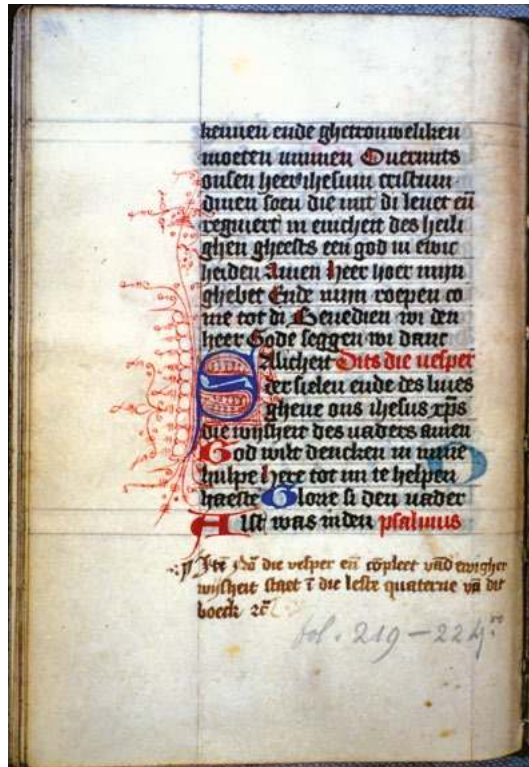 kennen ende ghetrouweliken
moeten minnen Ouermits
onsen heer ihesum cristum
dinen soen die mit di leuet eñ
regniert in enicheit des heili
ghen gheests een god in ewic
heiden Amen heer hoer mijn
ghebet Ende mijn roepen co
me tot di Benedien wi den
heer Gode seggen wi danc
Salicheit Dits die uesper
der sielen ende des liues
gheue ons ihesus xp̄s
die wijsheit des uaders amen
God wilt dencken in mine
hulpe here tot mi te helpen
haeste Glorie si den uader
Alst was inden psalmus
Itē die vesper eñ cōpleet vād ewigher
wijsheit staet ī die leste quaterne vā dit
boeck ⁊c̄
fol. 219-224